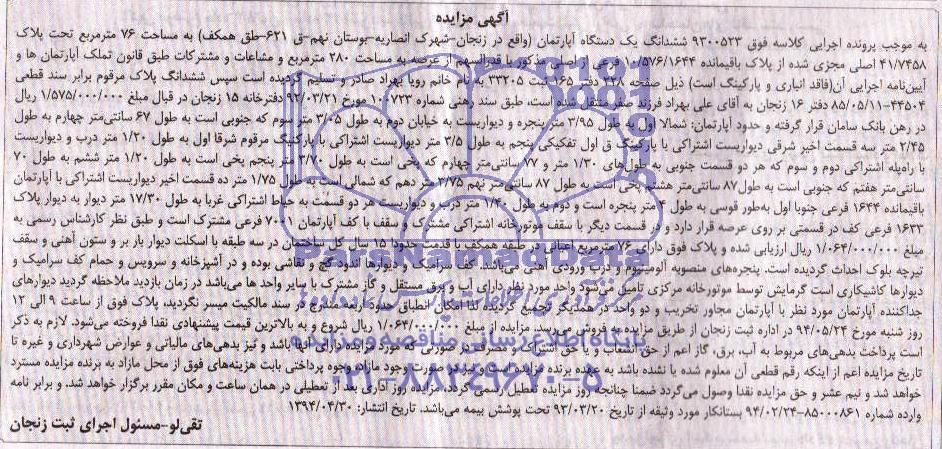 آگهی مزایده
به موجب پرونده اجرایی کلاسه فوق ۹۳۰۰۵۲۳ ششدانگ یک دستگاه آپارتمان (واقع در زنجان-شهرک انصاریه-بوستان نهم-ق ۶۲۱-طق همکف) به مساحت ۷۶ مترمربع تحت پلاک
۴۱/۷۴۵۸ اصلی مجزی شده از پلاک باقیمانده ۱۰/۵۷۶/۱۶۴۴ فرعی از اصلی مذکور با قدرالسهم از عرصه به مساحت ۲۸۰ مترمربع و مشاعات و مشترکات طبق قانون تملک آپارتمان ها و
آیین‌نامه اجرایی آن(فاقد انباری و پارکینگ است) ذیل صفحه دفتر ثبت ۳۳۲۰۵ به نام خانم رویا بهراد صادر و تسلیم گردیده است سپس ششدانگ پلاک مرقوم برابر سند قطعی
۸۵/۰۵/۱۱-۴۴۵۰۴ دفتر ۱۶ زنجان به آقای علی بهراد فرزند صفر منتقل شده است، طبق سند رهنی شماره ۱۰۷۲۳ مورخ ۹۲/۰۳/۲۱ دفترخانه ۱۵ زنجان در قبال مبلغ ۱/۵۷۵/۰۰۰/۰۰۰ ریال
در رهن بانک سامان قرار گرفته و حدود آپارتمان: شمالا اول به طول ۳/۹۵ متر پنجره و دیواریست به خیابان دوم به طول ۳/۰۵ متر سوم که جنوبی است به طول ۶۷ سانتی‌متر چهارم به طول
۲/۴۵ متر سه قسمت اخیر شرقی دیواریست اشتراکی با پارکینگ ق اول تفکیکی پنجم به طول ۳/۵ متر دیواریست اشتراکی با پارکینگ مرقوم شرقا اول به طول ۱/۲۰ متر درب و دیواریست
با راه‌پله اشتراکی دوم و سوم که هر دو قسمت جنوبی به طول‌های ۱/۳۰ متر و ۷۷ سانتی‌متر چهارم که پخی است به طول ۳/۷۰ متر پنجم پخی است به طول ۱/۲۰ متر ششم به طول ۷۰
سانتی‌متر هفتم که جنوبی است به طول ۸۷ سانتی‌متر هشتم پخی است به طول ۸۷ سانتی‌متر نهم ۲/۷۵ متر دهم که شمالی است به طول ۱/۷۵ متر ده قسمت اخیر دیواریست اشتراکی با آپارتمان
باقیمانده ۱۶۴۴ فرعی جنوبا اول به‌طور قوسی به طول ۴ متر پنجره است و دوم به طول ۱/۴۰ متر درب و دیواریست هر دو قسمت به حیاط اشتراکی غربا به طول ۱۷/۳۰ متر دیوار به دیوار پلاک
۱۶۳۳ فرعی کف در قسمتی بر روی عرصه قرار دارد و در قسمت دیگر با سقف موتورخانه اشتراکی مشترک و سقف با کف آپارتمان ۷۰۰۱ فرعی مشترک است و طبق نظر کارشناس رسمی به
مبلغ ۱/۰۶۴/۰۰۰/۰۰۰ ریال ارزیابی شده و پلاک فوق دارای ۷۶ مترمربع اعیانی در طبقه همکف با قدمت حدودا ۱۵ سال کل ساختمان در سه طبقه با اسکلت دیوار بار بر و ستون آهنی و سقف
تیرچه بلوک احداث گردیده است. پنجره‌های منصوبه آلومینیوم و درب ورودی آهنی می‌باشد. کف سرامیک و دیوارها اندود گچ و نقاشی بوده و در آشپزخانه و سرویس و حمام کف سرامیک و
دیوارها کاشیکاری است گرمایش توسط موتورخانه مرکزی تامین می‌شود واحد مورد نظر دارای آب و برق مستقل و گاز مشترک با سایر واحد ها می‌باشد در زمان بازدید ملاحظه گردید دیوارهای
جداکننده آپارتمان مورد نظر با آپارتمان مجاور تخریب و دو واحد در همدیگر تجمیع گردیده لذا امکان انطباق حدود اربعه مندرج در سند مالکیت میسر نگردید، پلاک فوق از ساعت ۹ الی ۱۲
روز شنبه مورخ ۹۴/۰۵/۲۴ در اداره ثبت زنجان از طریق مزایده به فروش می‌رسد. مزایده از مبلغ ۱/۰۶۴/۰۰۰/۰۰۰ ریال شروع و به بالاترین قیمت پیشنهادی نقدا فروخته می‌شود. لازم به ذکر
است پرداخت بدهی‌های مربوط به آب، برق، گاز اعم از حق انشعاب و یا حق اشتراک و مصرف در صورتی که مورد مزایده دارای آنها باشد و نیز بدهی‌های مالیاتی و عوارض شهرداری و غیره تا
تاریخ مزایده اعم از اینکه رقم قطعی آن معلوم شده یا نشده باشد به عهده برنده مزایده است و نیز در صورت وجود مازاد، وجوه پرداختی بابت هزینه‌های فوق از محل مازاد به برنده مزایده مسترد
خواهد شد و نیم عشر و حق مزایده نقدا وصول می‌گردد ضمنا چنانچه روز مزایده تعطیل رسمی گردد، مزایده روز اداری بعد از تعطیلی در همان ساعت و مکان مقرر برگزار خواهد شد. و برابر نامه
وارده شماره ۸۵۰۰۰۸۶۱-۹۴/۰۲/۲۴ بستانکار مورد وثیقه از تاریخ ۹۳/۰۳/۲۰ تحت پوشش بیمه می‌باشد. تاریخ انتشار: ۱۳۹۴/۰۴/۳۰
تقی‌لو-مسئول اجرای ثبت زنجان
ParsNamadData
پایگاه اطلاع رسانی مناقصه و مزایده
۰۲۱-۸۸۳۴۹۶۷۰-۵